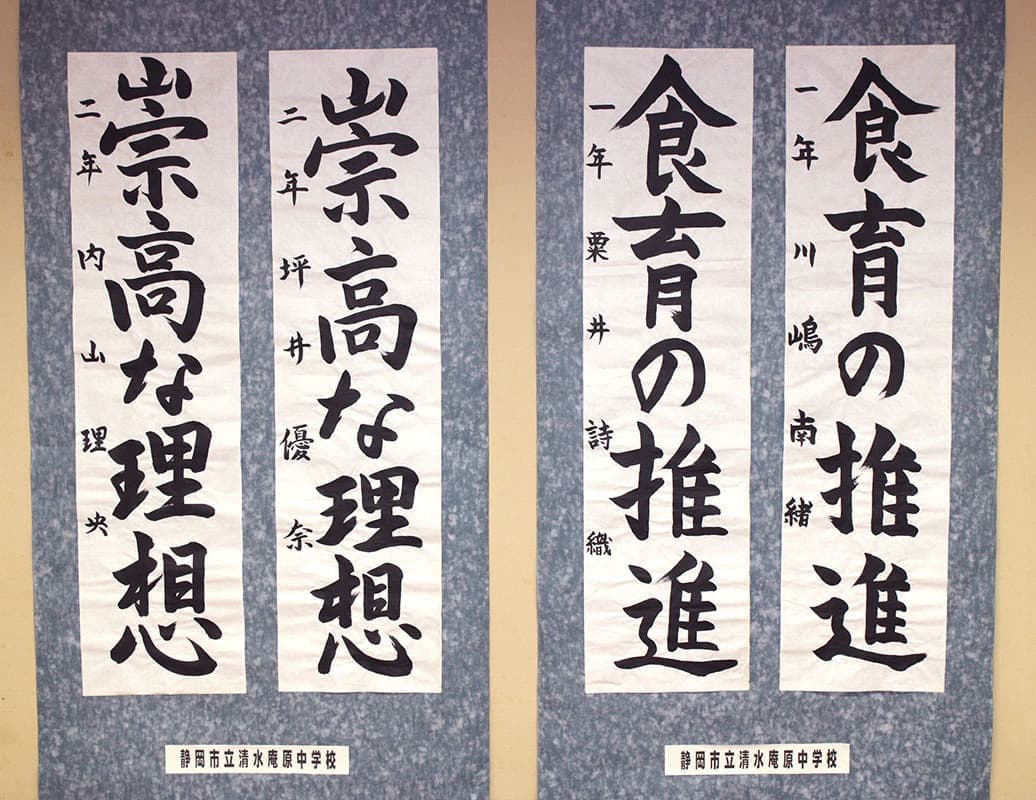 食育の推進
一年 川嶋南緒
食育の推進
一年 粟井詩織
静岡市立清水庵原中学校
崇高な理想
二年 坪井優奈
崇高な理想
二年 内山理央
静岡市立清水庵原中学校